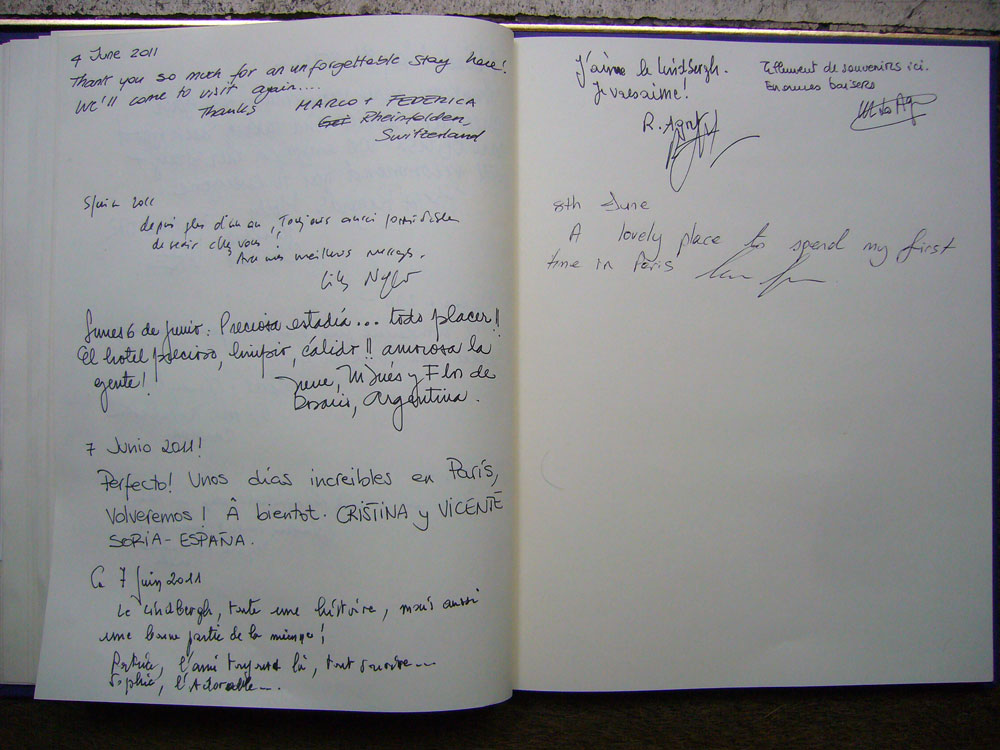 4 June 2011
Thank you so much for an unforgettable stay here!
We'll come to visit again....
Thanks MARCO + FEDERICA
Rheinfelden,
Switzerland
5 juin 2011
depuis plus d'un an, Toujours aussi
de venir chez vous!
Avec mes meilleurs
Lunes 6 de Junio: Preciosa estadía... todo placer!!
El hotel precioso, limpio, cálido!! amorosa la
gente!
Irene, M Inés y Flor de
Rosario, Argentina.
7 Junio 2011!
Perfecto! Unos días increibles en París,
Volveremos! Â bientot. CRISTINA y VICENTE
SORIA - ESPAÑA.
Ce 7 Juin 2011
Le Lindbergh, toute une histoire, mais aussi
une bonne partie de la mienne!
l'ami toujours là, tout sourire...
Sophie, l'Adorable...
J'aime le Lindbergh.
R. Agret
Tellement de souvenirs ici.
Enormes baisers
8th June
A lovely place to spend my first
time in Paris